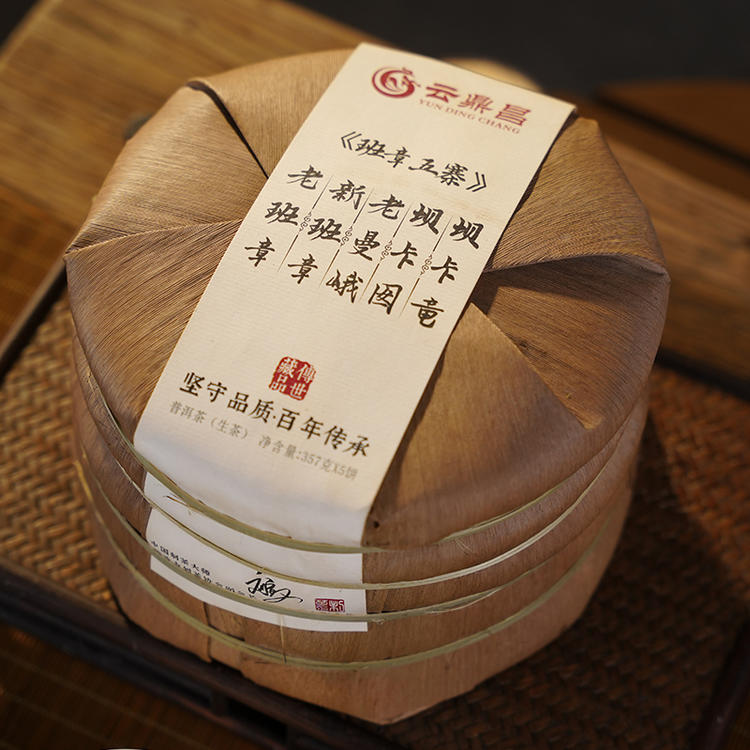 云鼎昌
YUN DING CHANG
《班章五寨》
坝卡竜
坝卡囡
老曼峨
新班章
老班章
傳世藏品
坚守品质·百年传承
普洱茶（生茶） 净含量:357克X5饼
中国制茶大师